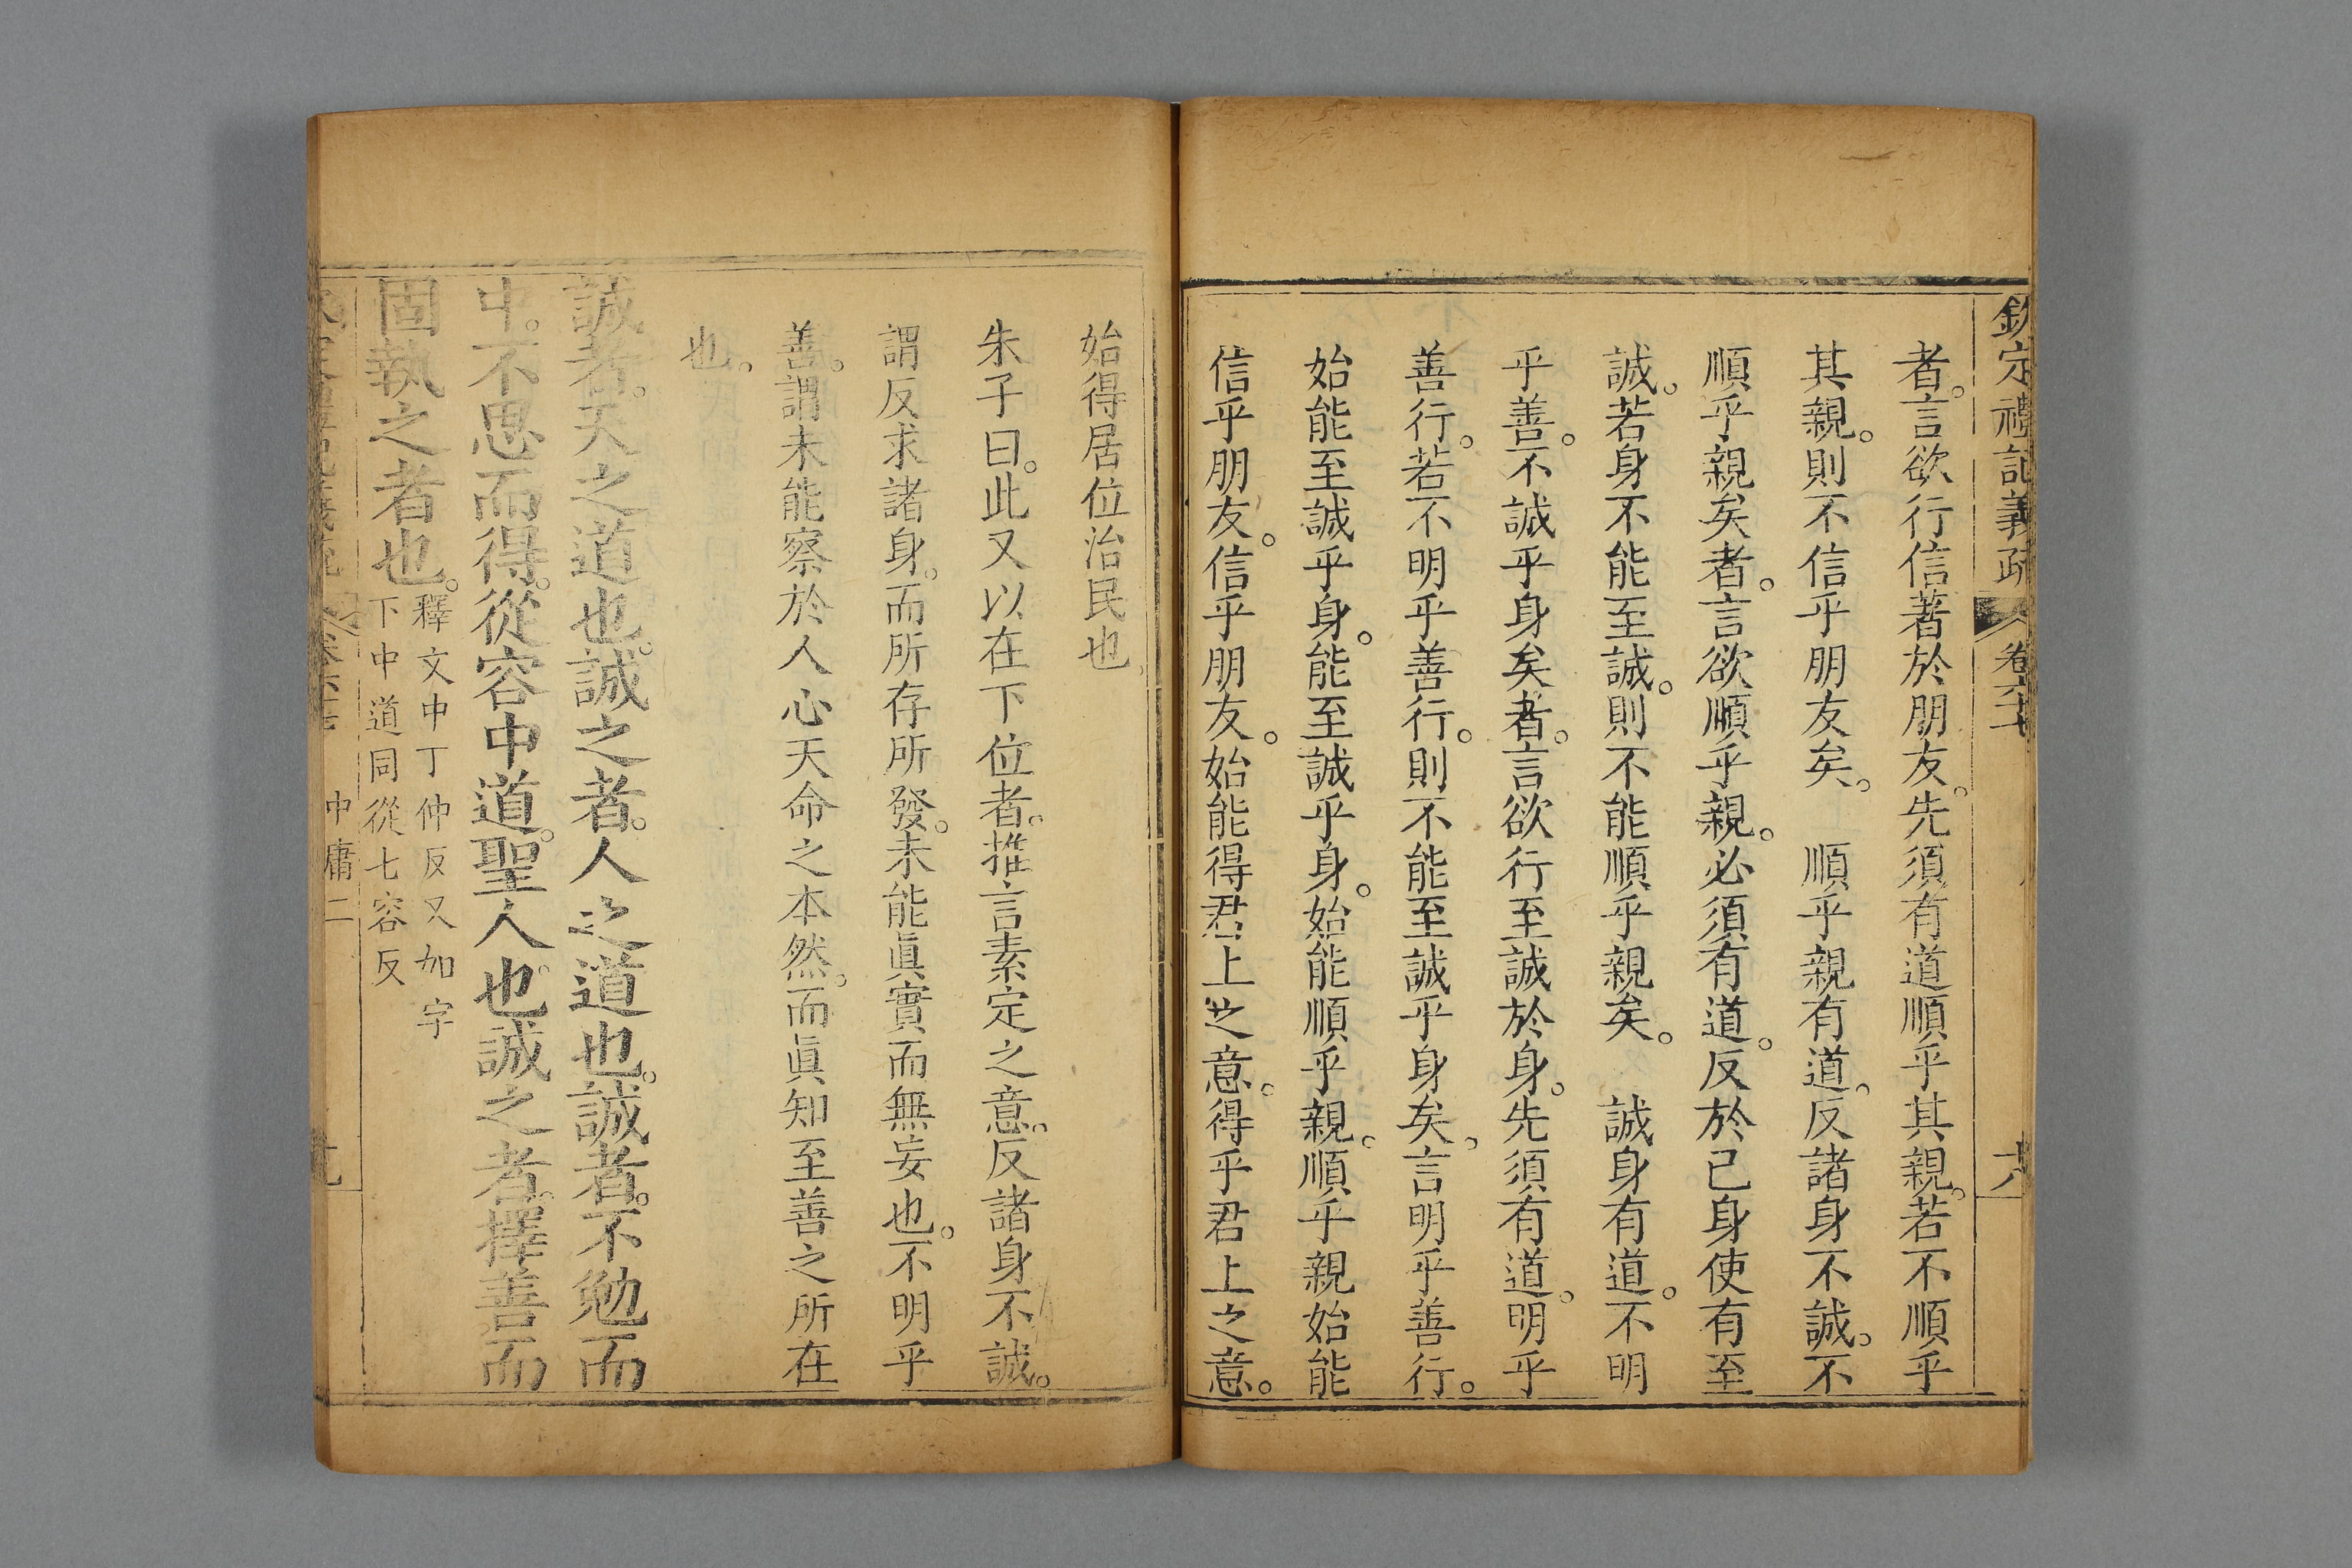 欽定禮記義疏 卷六十 十八
者。言欲行信著於朋友。先須有道順乎其親。若不順乎
其親。則不信乎朋友矣。 順乎親有道。反諸身不誠。不
順乎親矣者。言欲順乎親。必須有道。反於己身使有至
誠。若身不能至誠。則不能順乎親矣。 誠身有道。不明
乎善。不誠乎身矣者。言欲行至誠於身。先須有道。明乎
善行。若不明乎善行。則不能至誠乎身矣。言明乎善行。
始能至誠乎身。能至誠乎身。始能順乎親。順乎親始能
信乎朋友。信乎朋友。始能得君上之意。得乎君上之意。
始得居位治民也
朱子曰。此又以在下位者。推言素定之意。反諸身不誠。
謂反求諸身。而所存所發。未能眞實而無妄也。不明乎
善。謂未能察於人心天命之本然。而眞知至善之所在
也。
誠者。天之道也。誠之者。人之道也。誠者。不勉而
中。不思而得。從容中道。聖人也。誠之者。擇善而
固執之者也。釋文中丁仲反又如字
下中道同從七容反
中庸二